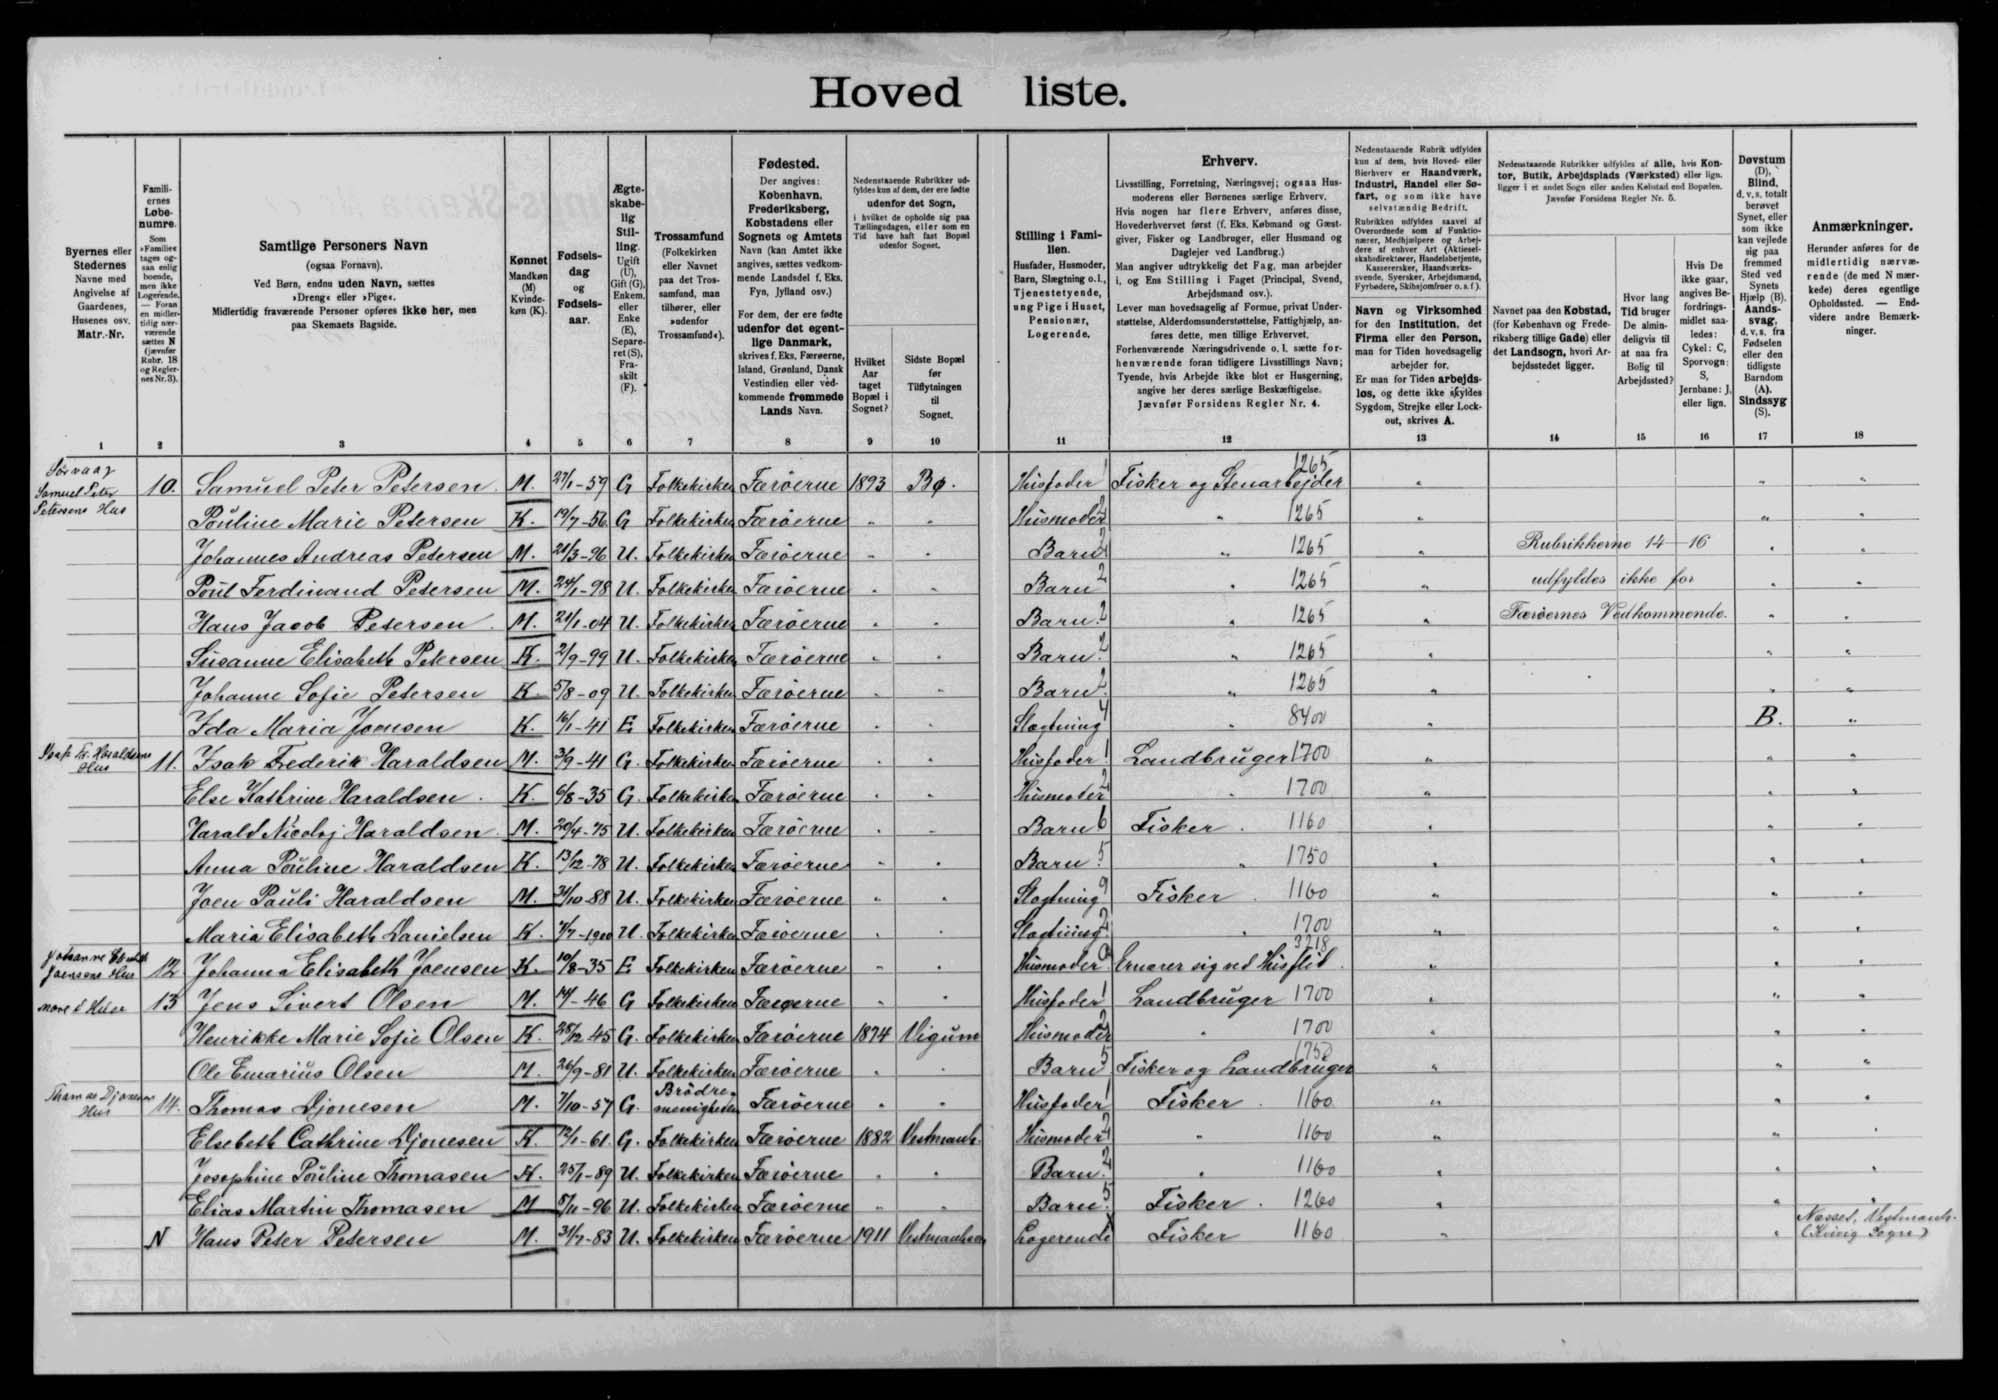 Hoved liste.
Byernes eller Stedernes Navne med Angivelse af Gaardenes, Husenes osv. Matr.-Nr.
Familiernes Løbenumre. Som »Familie« tages ogsaa enlig boende, men ikke Logerende. — Foran en midlertidig nærværende sættes N (jævnfør Rubr. 18 og Reglernes Nr. 3).
Samtlige Personers Navn (ogsaa Fornavn). Ved Børn, endnu uden Navn, sættes »Dreng« eller »Pige«. Midlertidig fraværende Personer opføres ikke her, men paa Skemaets Bagside.
Kønnet Mandkøn (M) Kvindekøn (K).
Fødselsdag og Fødselsaar.
Ægteskabelig Stilling. Ugift (U), Gift (G), Enkem. eller Enke (E), Separeret (S), Fraskilt (F).
Trossamfund (Folkekirken eller Navnet paa det Trossamfund, man tilhører, eller »udenfor Trossamfund«).
Fødested. Der angives: København, Frederiksberg, Købstadens eller Sognets og Amtets Navn (kan Amtet ikke angives, sættes vedkommende Landsdel f. Eks. Fyn, Jylland osv.) For dem, der ere fødte udenfor det egentlige Danmark, skrives f. Eks. Færøerne, Island, Grønland, Dansk Vestindien eller vedkommende fremmede Lands Navn.
Nedenstaaende Rubrikker udfyldes kun af dem, der ere fødte udenfor det Sogn, i hvilket de opholde sig paa Tællingsdagen, eller som en Tid have haft fast Bopæl udenfor Sognet.
Hvilket Aar taget Bopæl i Sognet?
Sidste Bopæl før Tilflytningen til Sognet.
Stilling i Familien. Husfader, Husmoder, Barn, Slægtning o.l., Tjenestetyende, ung Pige i Huset, Pensionær, Logerende.
Erhverv. Livsstilling, Forretning, Næringsvej; ogsaa Husmoderens eller Børnenes særlige Erhverv. Hvis nogen har flere Erhverv, anføres disse, Hovederhvervet først (f. Eks. Købmand og Gæstgiver, Fisker og Landbruger, eller Husmand og Daglejer ved Landbrug.) Man angiver udtrykkelig det Fag, man arbejder i, og Ens Stilling i Faget (Principal, Svend, Arbejdsmand osv.). Lever man hovedsagelig af Formue, privat Understøttelse, Alderdomsunderstøttelse, Fattighjælp, anføres dette, men tillige Erhvervet. Forhenværende Næringsdrivende o. l. sætte forhenværende foran tidligere Livsstillings Navn; Tyende, hvis Arbejde ikke blot er Husgerning, angive her deres særlige Beskæftigelse. Jævnfør Forsidens Regler Nr. 4.
Nedenstaaende Rubrik udfyldes kun af dem, hvis Hoved- eller Bierhverv er Haandværk, Industri, Handel eller Søfart, og som ikke have selvstændig Bedrift. Rubrikken udfyldes saavel af Overordnede som af Funktionærer, Medhjælpere og Arbejdere af enhver Art (Aktieselskabsdirektører, Handelsbetjente, Kasserersker, Haandværkssvende, Syersker, Arbejdsmænd, Fyrbødere, Skibsjomfruer o. s. f.). Navn og Virksomhed for den Institution, det Firma eller den Person, man for Tiden hovedsagelig arbejder for. Er man for Tiden arbejdsløs, og dette ikke skyldes Sygdom, Strejke eller Lockout, skrives A.
Nedenstaaende Rubrikker udfyldes af alle, hvis Kontor, Butik, Arbejdsplads (Værksted) eller lign. ligger i et andet Sogn eller anden Købstad end Bopælen. Jævnfør Forsidens Regler Nr. 5.
Navnet paa den Købstad, (for København og Frederiksberg tillige Gade) eller det Landsogn, hvori Arbejdsstedet ligger.
Hvor lang Tid bruger De almindeligvis til at naa fra Bolig til Arbejdssted?
Hvis De ikke gaar, angives Befordringsmidlet saaledes: Cykel: C, Sporvogn: S, Jernbane: J, eller lign.
Døvstum (D), Blind, d. v. s. totalt berøvet Synet, eller som ikke kan vejlede sig paa fremmed Sted ved Synets Hjælp (B). Aandssvag, d. v. s. fra Fødselen eller den tidligste Barndom (A). Sindssyg (S).
Anmærkninger. Herunder anføres for de midlertidig nærværende (de med N mærkede) deres egentlige Opholdssted. — Endvidere andre Bemærkninger.
1 2 3 4 5 6 7 8 9 10 11 12 13 14 15 16 17 18
Sørvaag Samuel Peter Petersens Hus 10. Samuel Peter Petersen. M. 27/1-59 G Folkekirken Færøerne 1893 Bø. Husfader 1 Fisker og Stenarbejder 1265
Pouline Marie Petersen K. 19/7-56 G Folkekirken Færøerne Husmoder 2 1265
Johannes Andreas Petersen M. 21/3-96 U. Folkekirken Færøerne Barn 2 1265 Rubrikkerne 14-16
Poul Ferdinand Petersen M. 24/1-98 U. Folkekirken Færøerne Barn 2 1265 udfyldes ikke for
Hans Jacob Petersen M. 21/1-04 U. Folkekirken Færøerne Barn 2 1265 Færøernes Vedkommende.
Susanne Elisabeth Petersen K. 2/9-99 U. Folkekirken Færøerne Barn 2 1265
Johanne Sofie Petersen K. 5/8-09 U. Folkekirken Færøerne Barn 2 1265
Ida Maria Joensen K. 16/1-41 E Folkekirken Færøerne Slægtning 4 8400 B.
Isak Fr. Haraldsens Hus 11. Isak Frederik Haraldsen M. 3/9-41 G. Folkekirken Færøerne Husfader 1 Landbruger 1700
Else Kathrine Haraldsen. K. 6/8-35 G. Folkekirken Færøerne Husmoder 2 1700
Harald Nicolaj Haraldsen. M. 20/4-75 U. Folkekirken Færøerne Barn 6 Fisker. 1160
Anna Pouline Haraldsen K. 13/12-78 U. Folkekirken Færøerne Barn 5 1750
Joen Pauli Haraldsen M. 31/10-88 U. Folkekirken Færøerne Slægtning 9 Fisker. 1160
Maria Elisabeth Danielsen K. 7/7-1900 U. Folkekirken Færøerne Slægtning 2 1700
Joensens Hus 12 Johanna Elisabeth Joensen K. 10/8-35 E Folkekirken Færøerne Husmoder Ernærer sig ved Husflid. 3218
13 Jens Sivert Olsen M. -46 G Folkekirken Færøerne Husfader 1 Landbruger 1700
Henrikke Marie Sofie Olsen K. 28/12-45 G. Folkekirken Færøerne 1874 Vigum Husmoder 2 1700
Ole Emarius Olsen M. 26/9-81 U. Folkekirken Færøerne Barn 5 Fisker og Landbruger 1750
Thomas Djonesens Hus 14. Thomas Djonesen M. 7/10-57 G. Brødremenigheden Færøerne Husfader 1 Fisker. 1160
Elsebeth Cathrine Djonesen K. 12/1-61 G. Folkekirken Færøerne 1882 Vestmanh. Husmoder 2 1160
Josephine Pouline Thomasen K. 25/1-89 U. Folkekirken Færøerne Barn 2 1160
Elias Martin Thomasen M 8/11-96 U. Folkekirken Færøerne Barn 5 Fisker. 1260
N Hans Peter Petersen M. 31/7-83 U. Folkekirken Færøerne 1911 Vestmanhavn Logerende Fisker 1160 Næsset, Vestmanh. (Kvivig Sogn)